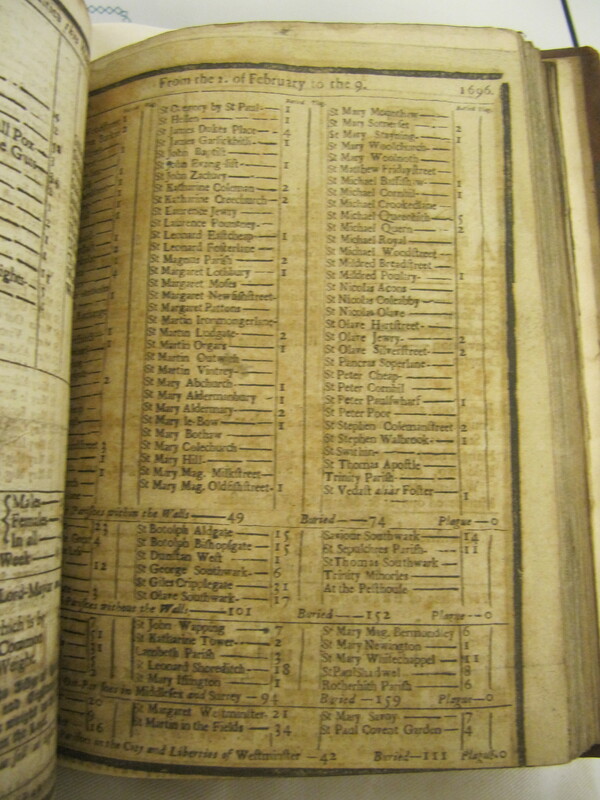 From the 2. of February to the 9. 1696.
St Gregory by St Paul 1
St Hellen 1
St James Dukes Place 4
St James Garlickhith 1
St John Baptist
St John Evangelist 1
St John Zachary
St Katharine Coleman 2
St Katharine Creechurch 2
St Laurence Jewry
St Laurence Pountney
St Leonard Eastcheap 1
St Leonard Fosterlane
St Magnus Parish 2
St Margaret Lothbury 1
St Margaret Moses
St Margaret Newfishstreet
St Margaret Pattons
St Martin Ironmongerlane
St Martin Ludgate 2
St Martin Orgars 1
St Martin Outwich
St Martin Vintrey
St Mary Abchurch 1
St Mary Aldermanbury 1
St Mary Aldermary 2
St Mary le-Bow 1
St Mary Bothaw
St Mary Colechurch
St Mary Hill
St Mary Mag. Milkstreet
St Mary Mag. Oldfishstreet 1
St Mary Mounthaw
St Mary Somerset 2
St Mary Stayning 1
St Mary Woolchurch
St Mary Woolnoth
St Matthew Fridaystreet
St Michael Bassishaw 1
St Michael Cornhil 1
St Michael Crookedlane
St Michael Queenhith 5
St Michael Quern 2
St Michael Royal
St Michael Woodstreet
St Mildred Breadstreet
St Mildred Poultry 1
St Nicolas Acons
St Nicolas Coleabby
St Nicolas Olave
St Olave Hartstreet
St Olave Jewry 2
St Olave Silverstreet 2
St Pancras Soperlane
St Peter Cheap
St Peter Cornhil
St Peter Paulswharf 1
St Peter Poor
St Stephen Colemanstreet 2
St Stephen Walbrook 1
St Swithin
St Thomas Apostle
Trinity Parish
St Vedast alias Foster 1
Parishes within the Walls 49 Buried 74 Plague 0
St Botolph Aldgate 15
St Botolph Bishopsgate 15
St Dunstan West 1
St George Southwark 6
St Giles Cripplegate 21
St Olave Southwark 17
Saviour Southwark 14
St Sepulchres Parish 11
St Thomas Southwark
Trinity Minories
At the Pesthouse
Parishes without the Walls 101 Buried 152 Plague 0
St John Wapping 7
St Katharine Tower 2
Lambeth Parish
St Leonard Shoreditch 18
St Mary Islington 1
St Mary Mag. Bermondsey 6
St Mary Newington 1
St Mary Whitechappel 11
St Paul Shadwel 8
Rotherhith Parish 6
Parishes in Middlesex and Surrey 94 Buried 159 Plague 0
St Margaret Westminster 21
St Martin in the Fields 34
St Mary Savoy 7
St Paul Covent Garden 4
Parishes in the City and Liberties of Westminster 42 Buried 111 Plague 0
Males
Females
In all
Lord-Mayor
which is by
Common
Weight.